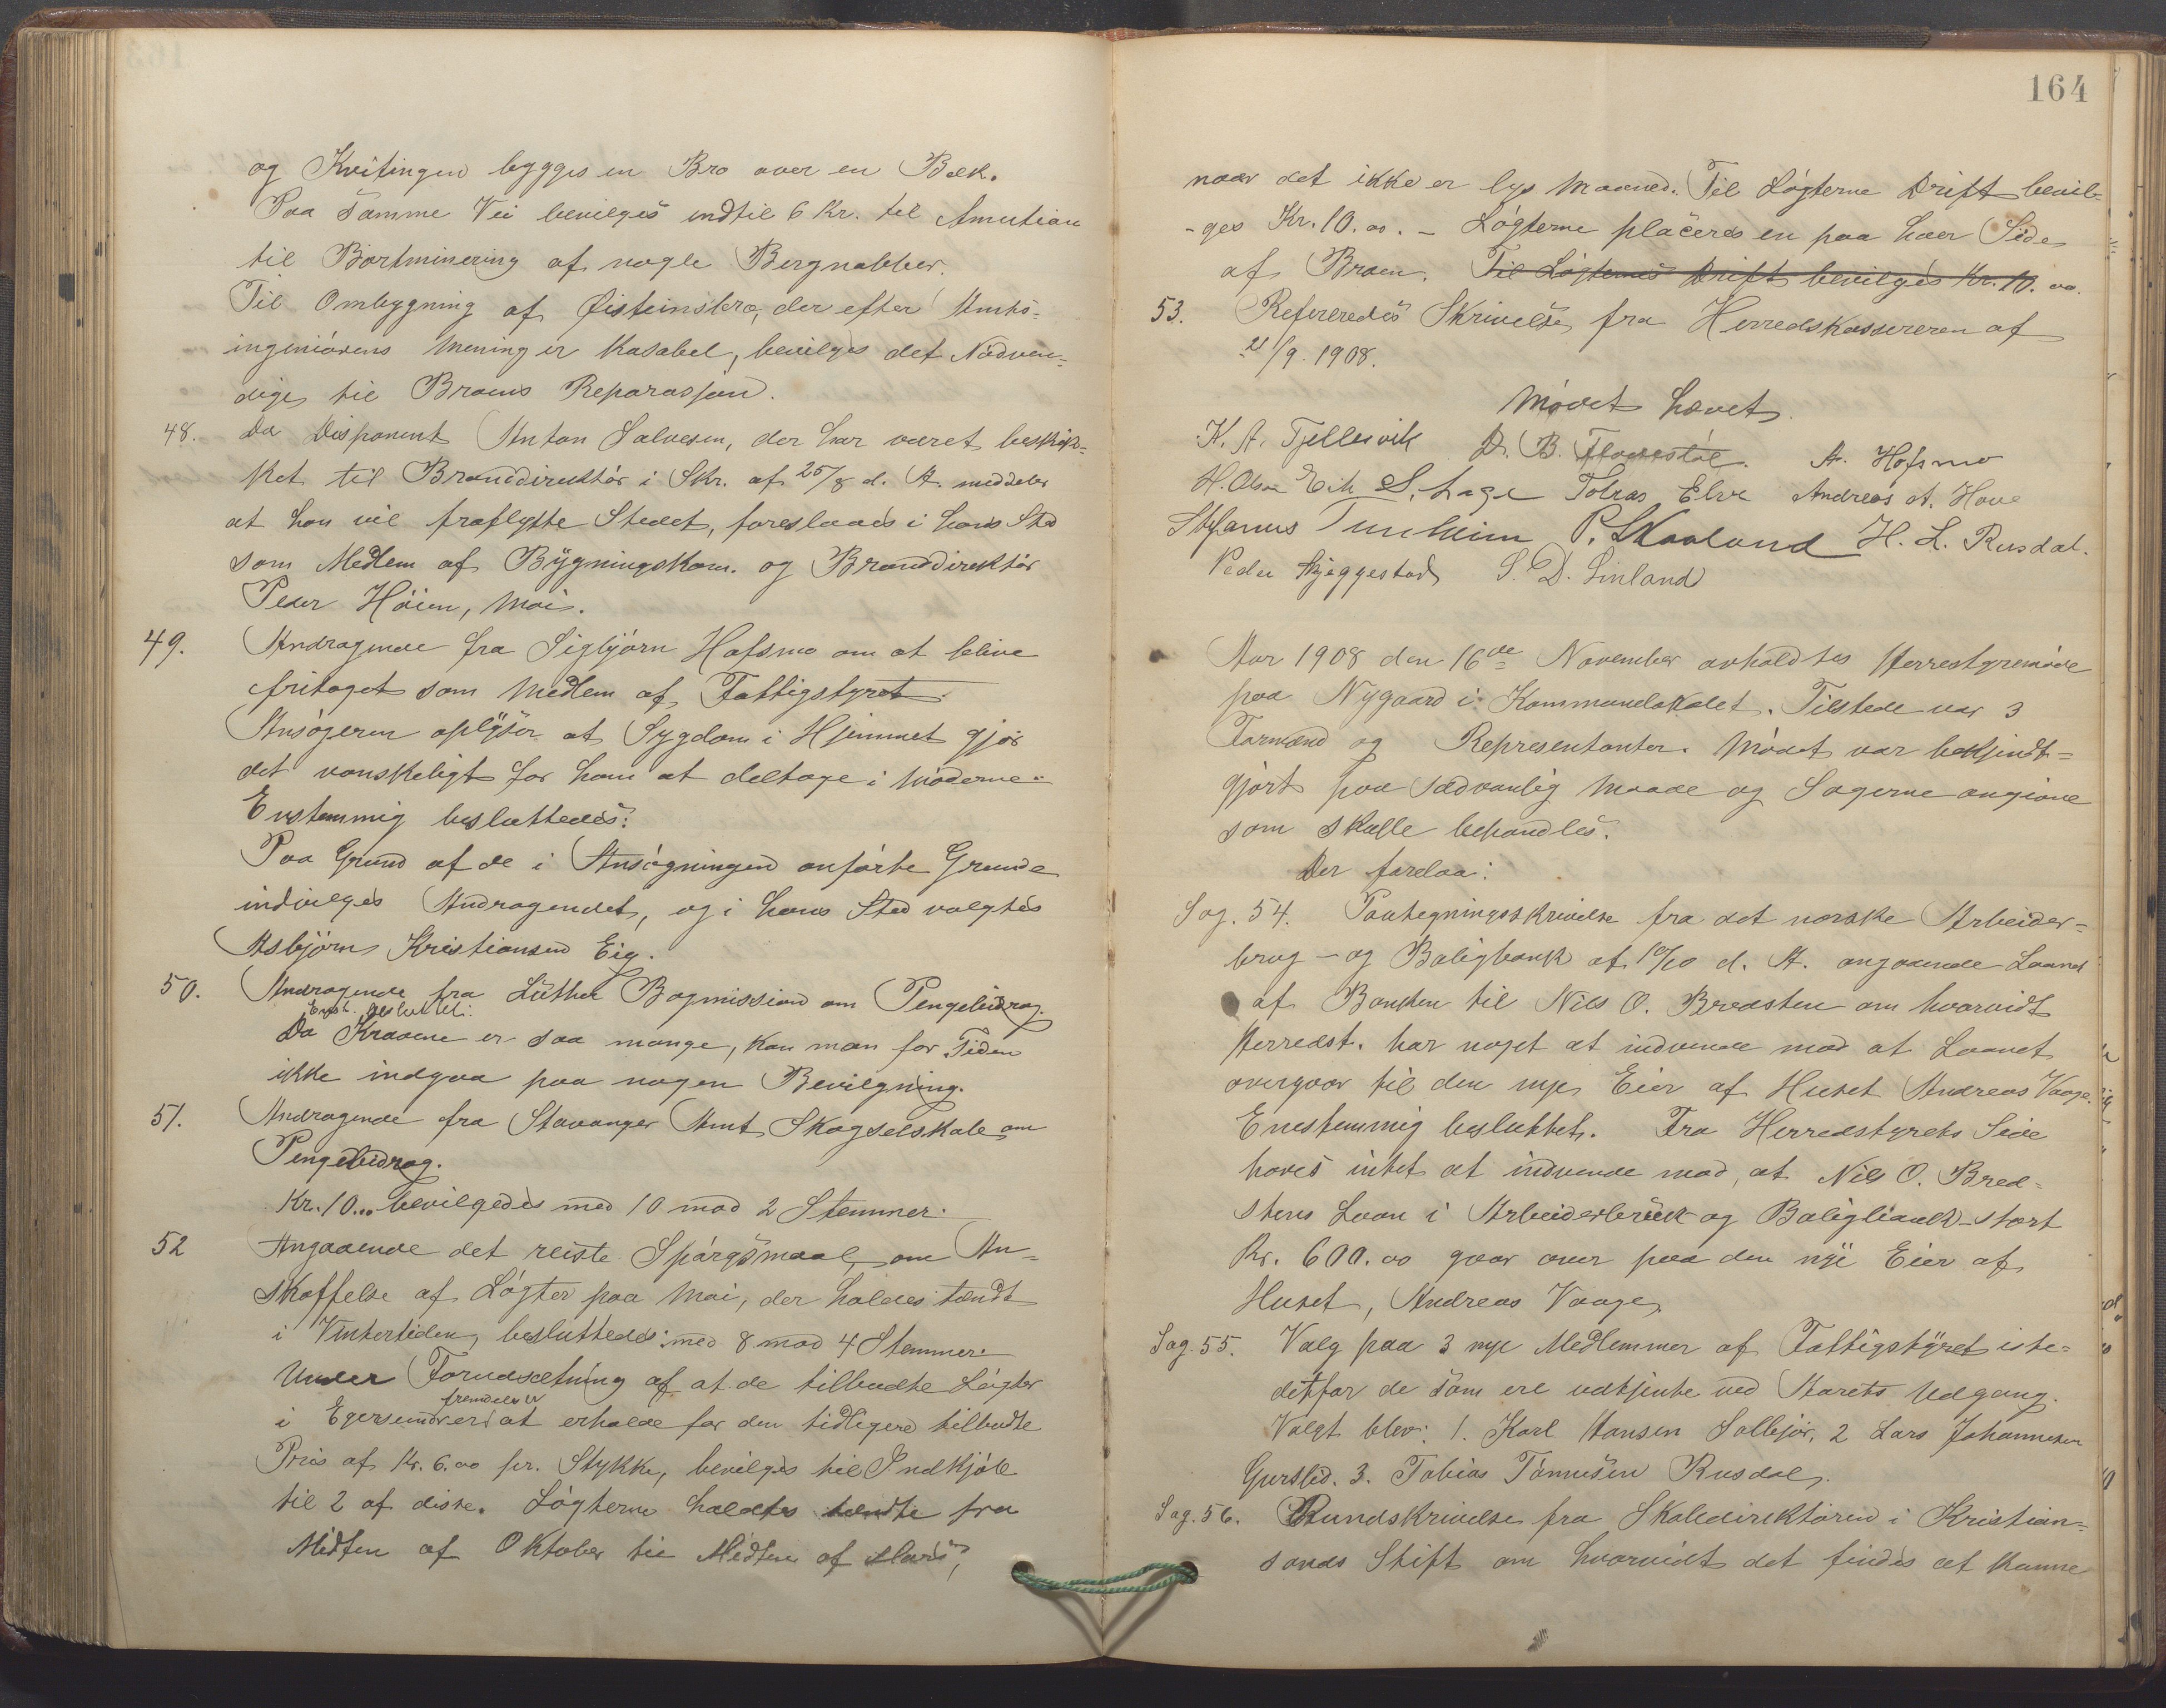 og Kvitingen bygges en Bro over en Bæk.
Paa samme Vei bevilges indtil 6 Kr. til Amution
til Bortminering af nogle Bergnabber.
Til Ombygning af Øisteinsbro, der efter Amts-
ingeniørens Mening er kasabel, bevilges det Nødven-
dige til Broens Reparasjon.
48. Da Disponent Anton Salvesen, der har været beskik-
ket til Branddirektør i Skr. af 25/8 d. A. meddeler
at han vil fraflytte Stedet, foreslaaes i hans Sted
som Medlem af Bygningskom. og Branddirektør
Peder Høien, Moi.
49. Andragende fra Sigbjørn Hofsmo om at blive
fritaget som Medlem af Fattigstyret.
Ansøgeren oplyser at Sygdom i Hjemmet gjør
det vanskeligt for ham at deltage i Møderne.
Enstemmig besluttedes:
Paa Grund af de i Ansøgningen anførte Grunde
indvilges Andragendet, og i hans Sted valgtes
Asbjørn Kristiansen Eig.
50. Andragende fra Luther Bogmission om Pengebidrag.
Enst. besluttet:
Da Kravene er saa mange, kan man for Tiden
ikke indgaa paa nogen Bevilgning.
51. Andragende fra Stavanger Amt Skogselskab om
Pengebidrag.
Kr. 10.00 bevilgedes med 10 mod 2 Stemmer.
52 Angaaende det reiste Spørgsmaal om An-
skaffelse af Løgter paa Moi, der holdes tændt
i Vintertiden, besluttedes med 8 mod 4 Stemmer:
Under Forudsætning af at de tilbudte Løgter
fremdeles er
i Egersund er at erholde for den tidligere tilbudte
Pris af Kr. 6.00 pr. Stykke, bevilges til Indkjøb
til 2 af disse. Løgterne holdtes tændte fra
Midten af Oktober til Midten af Mars,
164
naar det ikke er lys Maaned. Til Løgterne Drift bevil-
-ges Kr. 10.00. - Løgterne placeres en paa hver Side
af Broen. Til Løgternes Drift bevilges Kr. 10.00.
53. Refereredes Skrivelse fra Herredskassereren af
21/9. 1908.
Mødet hævet.
K. A. Tjellesvik D. B. A. Hofsmo
H. Olsen Eik S. Lage Tobias Elve Andreas A. Hove
Stefanus Tunheim P. Skaaland H. L. Rusdal.
Peder Skjeggestad S. D. Linland
Aar 1908 den 16de November avholdtes Herrestyremøde
paa Nygaard i Kommunelokalet. Tilstede var 3
Formænd og Representanter. Mødet var bekjendt-
gjort paa sædvanlig Maade og Sagerne angivne
som skulle behandles.
Der forelaa:
Sag. 54. Paategningsskrivelse fra det norske Arbeider-
brug - og Boligbank af 10/10 d. A. angaaende Laanet
af Banken til Nils O. Bredsten om hvorvidt
Herredst. har noget at indvende mod at Laanet
overgaar til den nye Eier af Huset Andreas Vaage.
Enestemmig besluttet. Fra Herredstyrets Side
haves intet at indvende mod, at Nils O. Bred-
stens Laan i Arbeiderbruk og Boligbank - stort
Kr. 600.00 gaar over paa den nye Eier af
Huset, Andreas Vaage.
Sag. 55. Valg paa 3 nye Medlemmer af Fattigstyret iste-
detfor de som ere udtjente ved Aarets Udgang.
Valgt blev: 1. Karl Hansen Sollesjør, 2 Lars Johannesen
Gursli. 3. Tobias Tønnesen Rusdal.
Sag. 56. Rundskrivelse fra Skoledirektøren i Kristian-
sands Stift om hvorvidt det findes at kunne